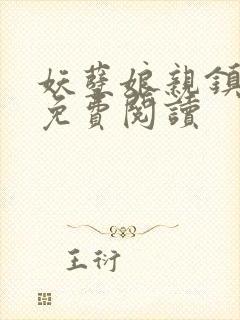 妖孽娘親鎮
免費閱讀
王衍